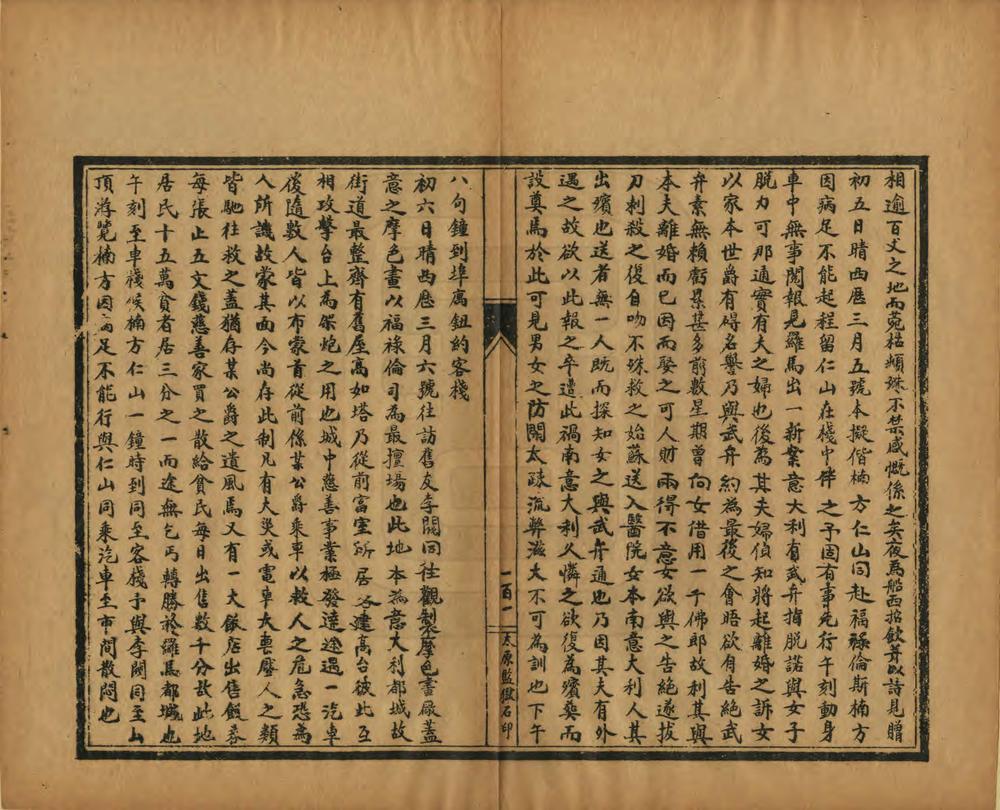 相逾百丈之地而菀枯頓殊不禁感慨係之矣夜為船西招飲并以詩見贈
初五日晴西歷三月五號本擬偕楠方仁山同赴福祿倫斯楠方
因病足不能起程留仁山在棧中伴之予因有事先行午刻動身
車中無事閱報見羅馬出一新案意大利有武弁指脫諾與女子
脫力可那通實有夫之婦也後為其夫婦偵知將起離婚之訴女
以家本世爵有碍名譽乃與武弁約為最後之會晤欲有告絕武
弁素無賴虧累甚多前數星期曾向女借用一千佛郎故利其與
本夫離婚而已因而娶之可人財兩得不意女欲與之告絕遂拔
刀刺殺之復自吻不殊救之始蘇送入醫院女本南意大利人其
出殯也送者無一人既而探知女之與武弁通也乃因其夫有外
遇之故欲以此報之卒遭此禍南意大利久憐之欲復為殯葬而
設奠焉於此可見男女之防閑太疎流弊滋大不可為訓也下午
一百一
太原監獄石印
八句鐘到埠寓鈕約客棧
初六日晴西歷三月六號往訪舊友李閣同往觀製摩色畫廠蓋
意之摩色畫以福祿倫司為最擅場也此地本為意大利都城故
街道最整齊有舊壓高如塔乃從前富室所居各建高台彼此互
相攻擊台上為架炮之用也城中慈善事業極發達途遇一汽車
後隨數人皆以布蒙首從前係某公爵乘車以救人之危急恐為
人所譏故蒙其面今尚存此制凡有火災或電車火車壓人之類
皆馳往救之蓋猶存某公爵之遺風焉又有一大飯店出售飯券
每張止五文錢慈善家買之散給貧民每日出售數千分故此地
居民十五萬貧者居三分之一而途無乞丐轉勝於羅馬都城也
午刻至車棧候楠方仁山一鐘時到同至客棧予與李閣同至山
頂游覽楠方因病足不能行與仁山同乘汽車至市間散悶也